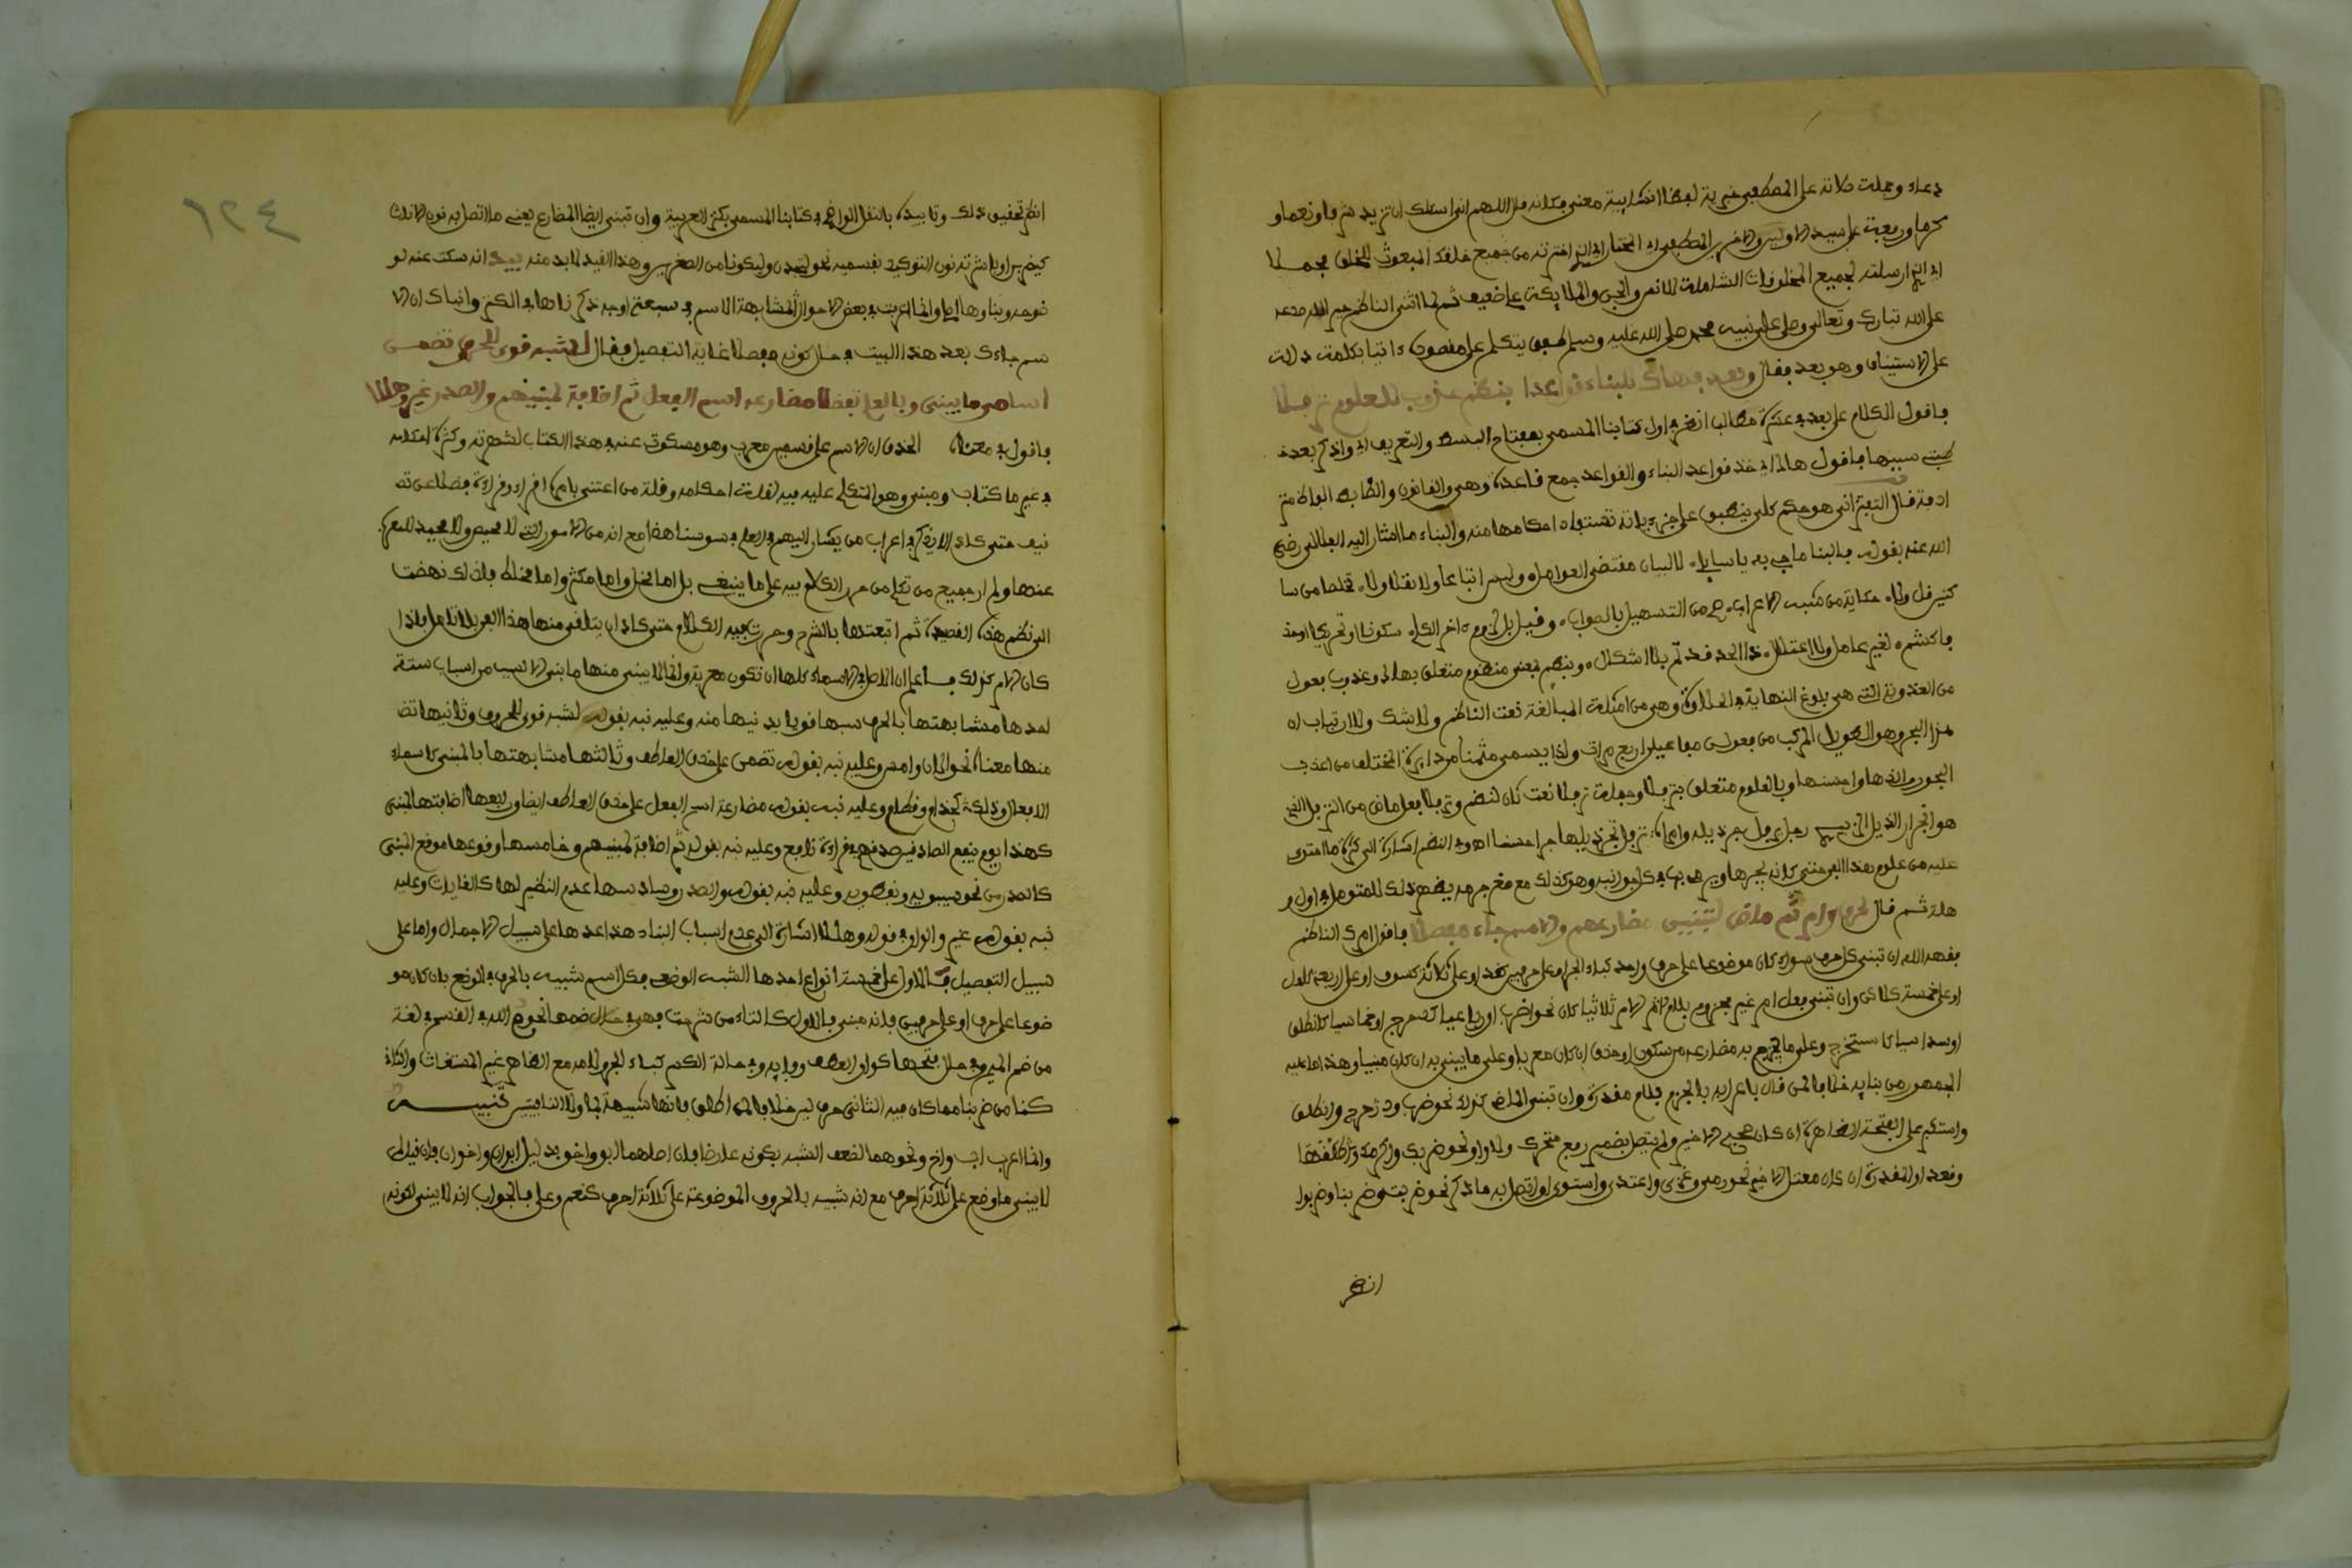 دعاء وجملة صلاته على المصطفى خبرية لفظا انشايية معنى فكانه قال اللهم انى اسئلك ان تزيد شرفا ونعما و
كرما ورفعة على سيد الاولين والاخرين المصطفى اى المختار اى الذى اخترته من جميع خلقك المبعوث للخلق مجملا
اى الذى ارسلته لجميع المخلوقات الشاملة للانس والجن والملايكة على ضعيف ثم لما اثنى الناظم
على الله تبارك وتعالى وصلى على نبيه محمد صلى الله عليه وسلم طفق يتكلم على مقصوده اتيا بكلمة دالة
على الاستيناف وهو بعد فقال وبعد فهاك للبناء قواعدا بنظم عذوب للعلوم
فاقول الكلام على بعد فى عشرة مطالب انظره اول كتابنا المسمى بمفتاح البسط والتعريف اى واذكر بعد
سببها فاقول هاك اى خذ قواعد البناء والقواعد جمع قاعدة وهى والقانون والضابط
قال التفتزانى هو حكم كلى ينطبق على جزءياته تستفاد احكامها منه والبناء ما اشار اليه رضى
الله عنه بقوله فالبنا ما جىء به يا سايل لا لبيان مقتضى العوامل وليس اتباعا ولا نقلا ولا تخلصا من سا
كنين قل ولا حكاية من شبه الاعراب جى من التسهيل بالصواب وقيل بل لزوم اخر الكلم سكونا او تحريكا اوحذ
فا كشم لغير عامل ولا اعتلال ذا الحد قد تم بلا اشكال وبنظم بمعنى منظوم متعلق بهاك وعذوب فعول
من العذوبة التى هى بلوغ النهاية فى الحلاوة وهى من امثلة المبالغة نعت الناظم ولا شك ولا ارتياب ان
هذا البحر وهو الطويل المركب من فعولن مفاعيلن اربع مرات ولذا يسمى مثمنا من دايرة المختلف من اعذب
البحور والذها واحسنها وبالعلوم متعلق
هو انجرار الذيل
عليه من علوم هذا الفن حتى كانه يجرها
ثم قال لحرف وامر ثم ماض لتبنين مضارعهم والاسم جاء مفصلا فاقول امرك الناظم
بفهد الله ان تبنى كل حرف سواء كان موضوعا على حرف واحد كباء الجر او على حرفين كقد او على ثلاثة كسوف او على اربعة كلعل
او على خمسة كلاكن وان تبنى فعل امر غير مجزوم بلام الامر ثلاثيا كان نحو اضرب او رباعيا كدحرج او خماسيا كانطلق
او سداسيا كاستخرج وعلى ما يجزم به مضارعه من سكون او حذف ان كان معربا وعلى ما يبنى به ان كان مبنيا وهذا ما عليه
الجمهور من بنايه خلافا لمن قال باعرابه بالجزم بلام مقدرة وان تبنى الماضى كذلك نحو ضرب ودحرج وانطلق
واستكبر على الفتحة الظاهرة ان كان صحيح الاخير ولم يتصل بضمير رفع متحرك ولا واو نحو ضربك واكرمك
وقعد او المقدرة ان كان معتل الاخير نحو رمى وغزى واعتدى واستوى او اتصل به ما ذكر نحو ضربت وضربنا وضربوا
انظر
٤٢٦
انظر تحقيق ذلك وتابيده بالنقل الواضح فى كتابنا المسمى بكنز العربية وان تبنى ايضا المضارع يعنى ما اتصل به نون الاناث
كيضربن او باشرته نون التوكيد بقسميه نحو لينبذن وليكونا من الصغرين وهذا القيد لا بد منه بيد انه سكت عنه لو
ضوحه وبناوها اصل وانما اعربت فى بعض الاحوال لمشابهة الاسم فى سبعة اوجه ذكرناها فى الكنز وانباك ان الا
سم جاءك بعد هذا البيت فى حال كونه مفصلا غاية التفصيل فقال لشبه قوى للحرف تضمن
اسام ما يبنى وبالعل بعضا مضارعه اسم الفعل ثم اضافة لمبنيهم والصدر غير وهللا
فاقول فى معناه الحق ان الاسم على قسمين معرب وهو مسكوت عنه فى هذا الكتاب لشهرته وكثرة احكامه
فى غير ما كتاب ومبنى وهو المتكلم عليه فيه لقلة احكامه وقلة من اعتنى بامره اقراء وقراءة فضلا عن تصـ
نيف حتى كاد لا يذكر فى اعراب من يشار اليهم بالعلم فى سوسنا هذا مع انه من الامور التى لا محيص ولا محيد للمعرب
عنها ولم ار جميع من تكلم من حرر الكلام فيه على ما ينبغى بل اما مخل واما مكثر واما مخلط فلذلك نهضت
الى نظم هذه القصيدة ثم اتبعتها بالشرح وحررت فيه الكلام حتى كاد ان يتلقى منها هذا الفن بلا تامل واذا
كان الامر كذلك فاعلم ان الاصل فى الاسماء كلها ان تكون معربة وانما يبنى منها ما بنى لسبب من اسباب ستة
احدها مشابهتها بالحرف شبها قويا يدنيها منه وعليه نبه بقوله لشبه قوى للحروف وثانيها تضـ
منها معناه نحو الان وامس وعليه نبه بقوله تضمن على حذف العاطف وثالثها مشابهتها بالمبنى كاسماء
الافعال وذلك كحذام وقطام وعليه نبه بقوله مضارعة اسم الفعل على حذف العاطف ايضا ورابعها اضافتها للمبنى
كهذا يوم ينفع الصادقين صدقهم فى قراءة نافع وعليه نبه بقوله ثم اضافة لمبنيهم وخامسها وقوعها موقع المبنى
كالصدر من نحو سيبويه ونفطويه وعليه نبه بقوله والصدر وسادسها عدم النظير لها كالغايات وعليه
نبه بقوله غير والواو فى قوله وهللا اشارة الى عدم اسباب البناء هذا عدها على سبيل الاجمال واما على
سبيل التفصيل فالاول على خمسة انواع احدها الشبه الوضعى فكل اسم شبيه بالحرف فى الوضع بان كان مو
ضوعا على حرف او على حرفين فانه مبنى فالاول كالتاء من شربت فهى فى حال ضمها نحو م الله فى القسم فى لغة
من ضم الميم وفى حال فتحها كواو العطف وفايه وفى حالة الكسر كباء الجر ولامه مع الظاهر غير المستغاث والثانى
كنا من ضربنا مما كان فيه الثانى حرف لين خلافا لمن اطلق فانها شبيهة بما ولا النافيتين تنبيه
وانما اعرب اب واخ ونحوهما لضعف الشبه بكونه عارضا فان اصلهما ابو واخو بدليل ابوان واخوان فان قيل لم
لا يبنى ما وضع على ثلاثة احرف مع انه شبيه بالحروف الموضوعة على ثلاثة احرف كنعم وعلى فالجواب انه لا يبنى لكونه